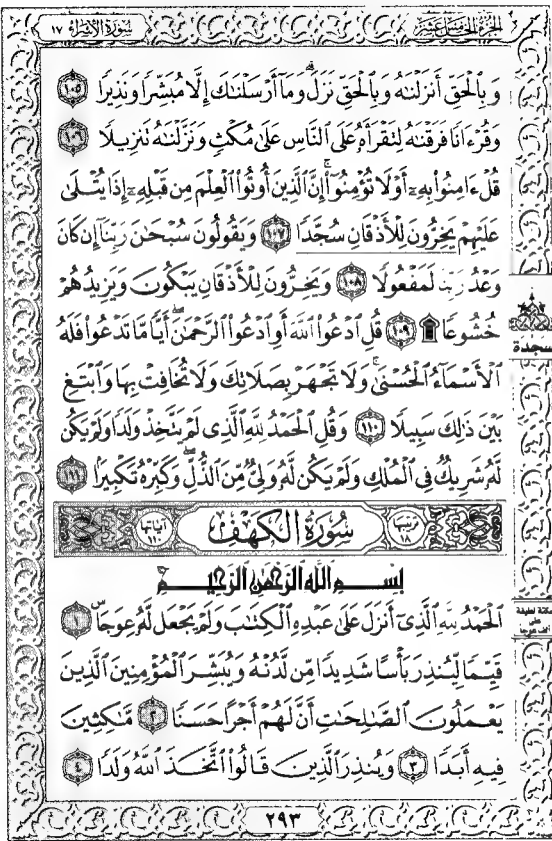 الجزء الخامس عشر
سورة الإسراء ١٧
وَبِٱلْحَقِّ أَنزَلْنَٰهُ وَبِٱلْحَقِّ نَزَلَ ۗ وَمَآ أَرْسَلْنَٰكَ إِلَّا مُبَشِّرًا وَنَذِيرًا ١٠٥
وَقُرْءَانًا فَرَقْنَٰهُ لِتَقْرَأَهُۥ عَلَى ٱلنَّاسِ عَلَىٰ مُكْثٍ وَنَزَّلْنَٰهُ تَنزِيلًا ١٠٦
قُلْ ءَامِنُوا۟ بِهِۦٓ أَوْ لَا تُؤْمِنُوٓا۟ ۚ إِنَّ ٱلَّذِينَ أُوتُوا۟ ٱلْعِلْمَ مِن قَبْلِهِۦٓ إِذَا يُتْلَىٰ
عَلَيْهِمْ يَخِرُّونَ لِلْأَذْقَانِ سُجَّدًا ١٠٧ وَيَقُولُونَ سُبْحَٰنَ رَبِّنَآ إِن كَانَ
وَعْدُ رَبِّنَا لَمَفْعُولًا ١٠٨ وَيَخِرُّونَ لِلْأَذْقَانِ يَبْكُونَ وَيَزِيدُهُمْ
خُشُوعًا ۩ ١٠٩ قُلِ ٱدْعُوا۟ ٱللَّهَ أَوِ ٱدْعُوا۟ ٱلرَّحْمَٰنَ ۖ أَيًّا مَّا تَدْعُوا۟ فَلَهُ
سجدة
ٱلْأَسْمَآءُ ٱلْحُسْنَىٰ ۚ وَلَا تَجْهَرْ بِصَلَاتِكَ وَلَا تُخَافِتْ بِهَا وَٱبْتَغِ
بَيْنَ ذَٰلِكَ سَبِيلًا ١١٠ وَقُلِ ٱلْحَمْدُ لِلَّهِ ٱلَّذِى لَمْ يَتَّخِذْ وَلَدًا وَلَمْ يَكُن
لَّهُۥ شَرِيكٌ فِى ٱلْمُلْكِ وَلَمْ يَكُن لَّهُۥ وَلِىٌّ مِّنَ ٱلذُّلِّ ۖ وَكَبِّرْهُ تَكْبِيرًۢا ١١١
ترتيبها ١٨
سُورَةُ الكَهْف
آياتها ١١٠
بِسْمِ ٱللَّهِ ٱلرَّحْمَٰنِ ٱلرَّحِيمِ
ٱلْحَمْدُ لِلَّهِ ٱلَّذِىٓ أَنزَلَ عَلَىٰ عَبْدِهِ ٱلْكِتَٰبَ وَلَمْ يَجْعَل لَّهُۥ عِوَجَا ۜ ١
سكتة لطيفة
على
ألف عوجا
قَيِّمًا لِّيُنذِرَ بَأْسًا شَدِيدًا مِّن لَّدُنْهُ وَيُبَشِّرَ ٱلْمُؤْمِنِينَ ٱلَّذِينَ
يَعْمَلُونَ ٱلصَّٰلِحَٰتِ أَنَّ لَهُمْ أَجْرًا حَسَنًا ٢ مَّٰكِثِينَ
فِيهِ أَبَدًا ٣ وَيُنذِرَ ٱلَّذِينَ قَالُوا۟ ٱتَّخَذَ ٱللَّهُ وَلَدًا ٤
٢٩٣